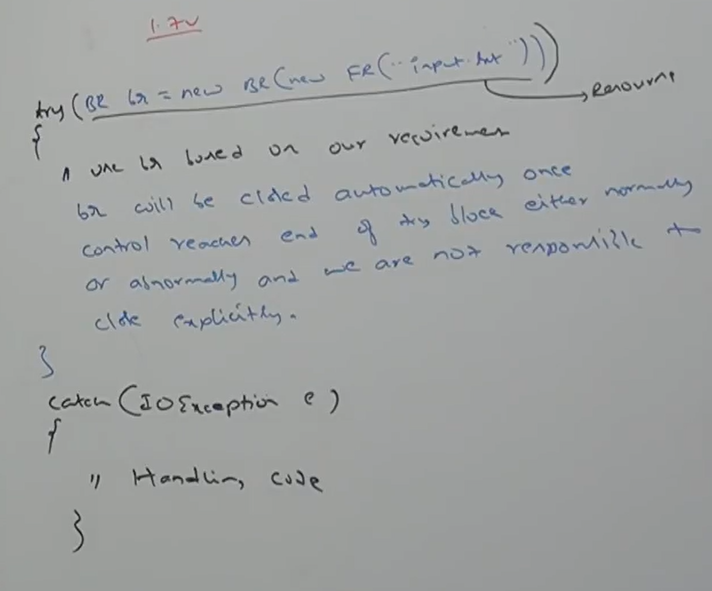 1.7v
try (BR br = new BR(new FR("input.txt")))
Resource
{
// use br based on our requirement
br will be closed automatically once
control reaches end of try block either normally
or abnormally and we are not responsible to
close explicitly.
}
catch (IOException e)
{
// Handling code
}